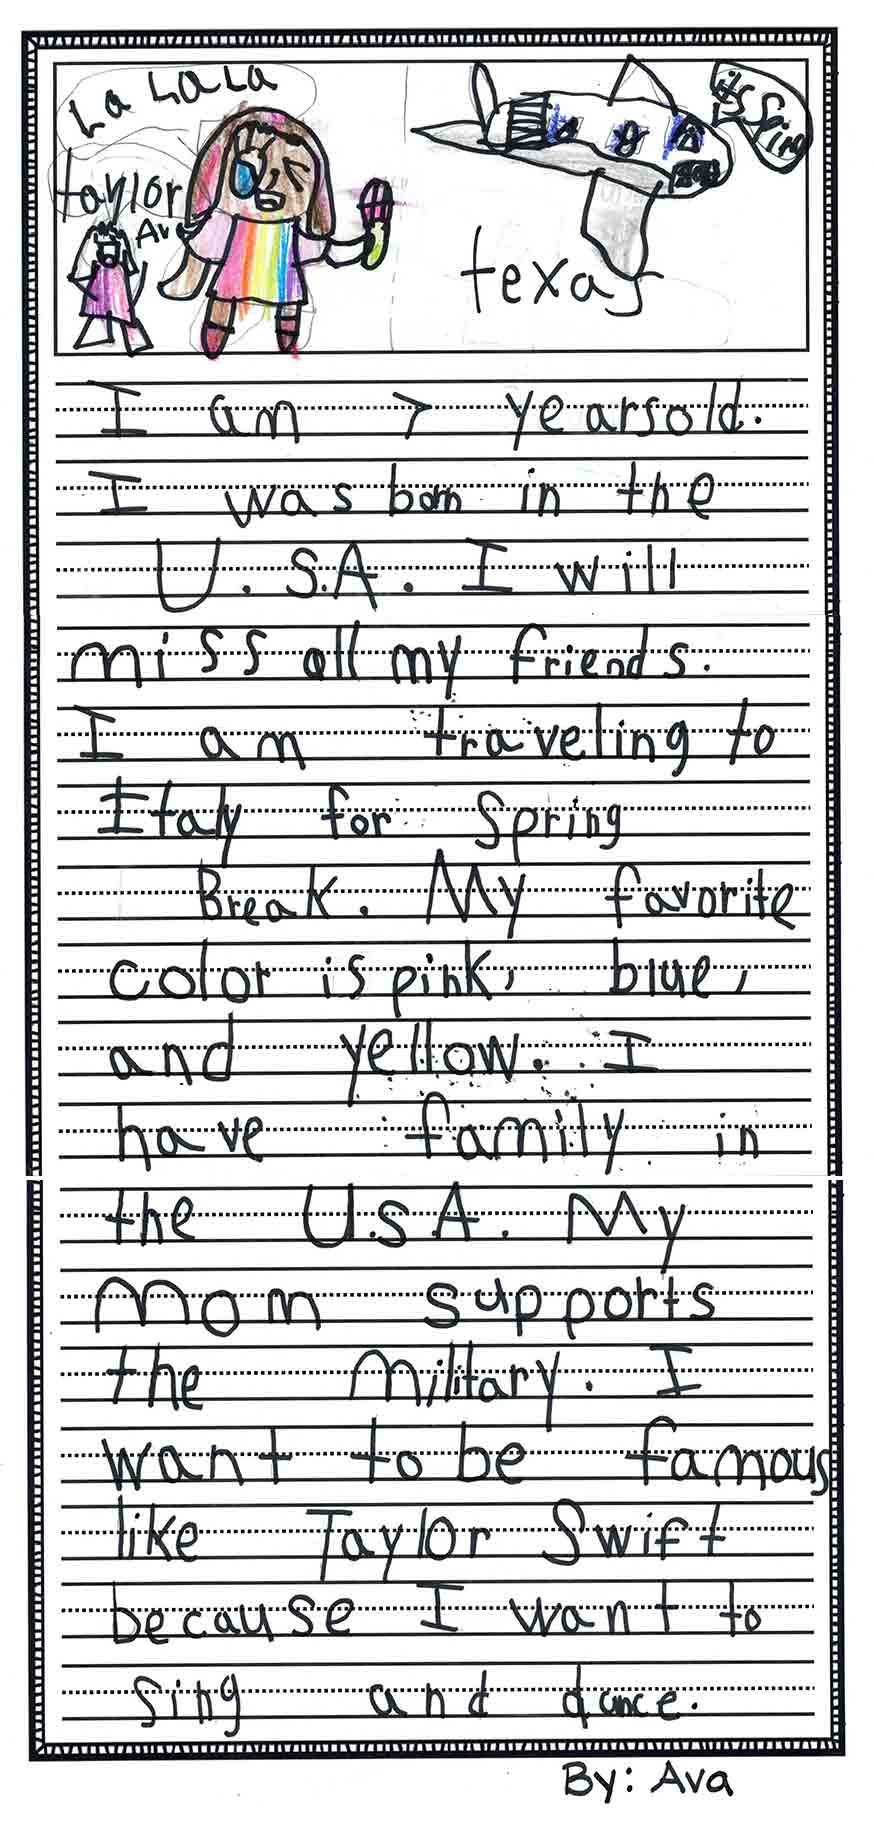 La LaLa
taylor
Ava
its Spring
texas
I am 7 yearsold.
I was born in the
U.S.A. I will
miss all my friends.
I am traveling to
Italy for Spring
Break. My favorite
color is pink, blue,
and yellow. I
have family in
the U.S.A. My
Mom supports
the military. I
want to be famous
like Taylor Swift
because I want to
sing and dance.
By: Ava